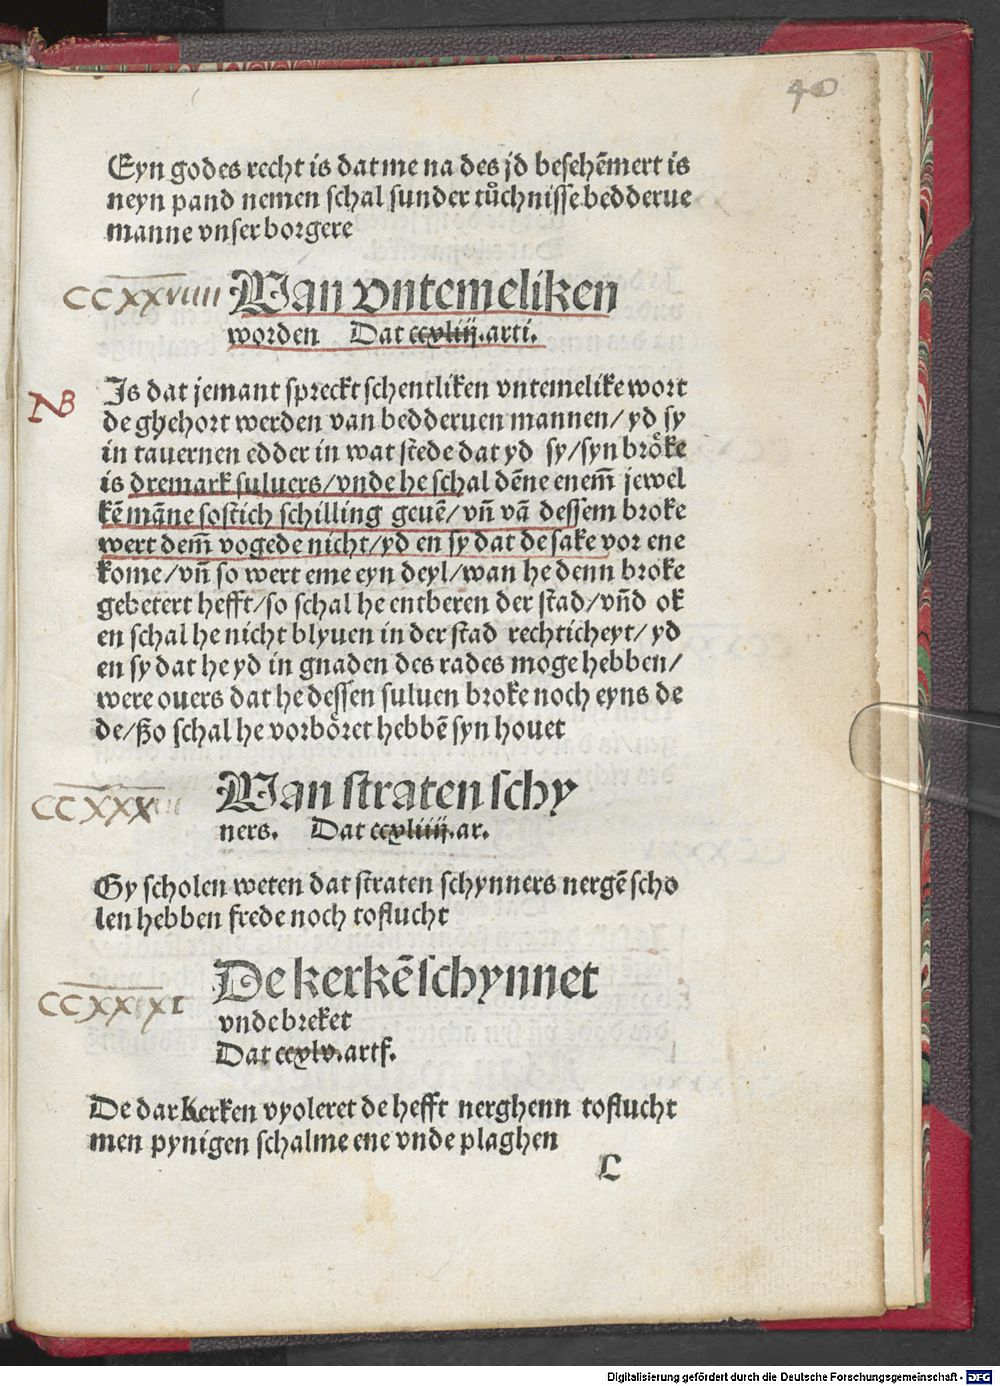 40
Eyn godes recht is dat me na des jd besehēmert is
neyn pand nemen schal sunder tůchnisse bedderue
manne vnser borgere
CCXXVIIII Wan vntemeliken
worden Dat ccxliij. arti.
NB
Js dat jemant spreckt schentliken vntemelike wort
de ghehort werden van bedderuen mannen/ yd sy
in tauernen edder in wat stede dat yd sy/ syn bröke
is dremark suluers/ vnde he schal dēne enem̄ jewel
kē māne sostich schilling geuē/ vn̄ vā dessem broke
wert dem̄ vogede nicht/ yd en sy dat de sake vor ene
kome/ vn̄ so wert eme eyn deyl/ wan he denn broke
gebetert hefft/ so schal he entberen der stad/ vn̄d ok
en schal he nicht blyuen in der stad rechticheyt/ yd
en sy dat he yd in gnaden des rades moge hebben/
were ouers dat he dessen suluen broke noch eyns de
de/ ßo schal he vorböret hebbē syn houet
CCXXX Wan straten schy
ners. Dat ccxliiij. ar.
Gy scholen weten dat straten schynners nergē scho
len hebben frede noch toflucht
CCXXXI De kerkē schynnet
vnde breket
Dat ccxlv. artf.
De dar kerken vyoleret de hefft nerghenn toflucht
men pynigen schalme ene vnde plaghen
L
Digitalisierung gefördert durch die Deutsche Forschungsgemeinschaft - DFG